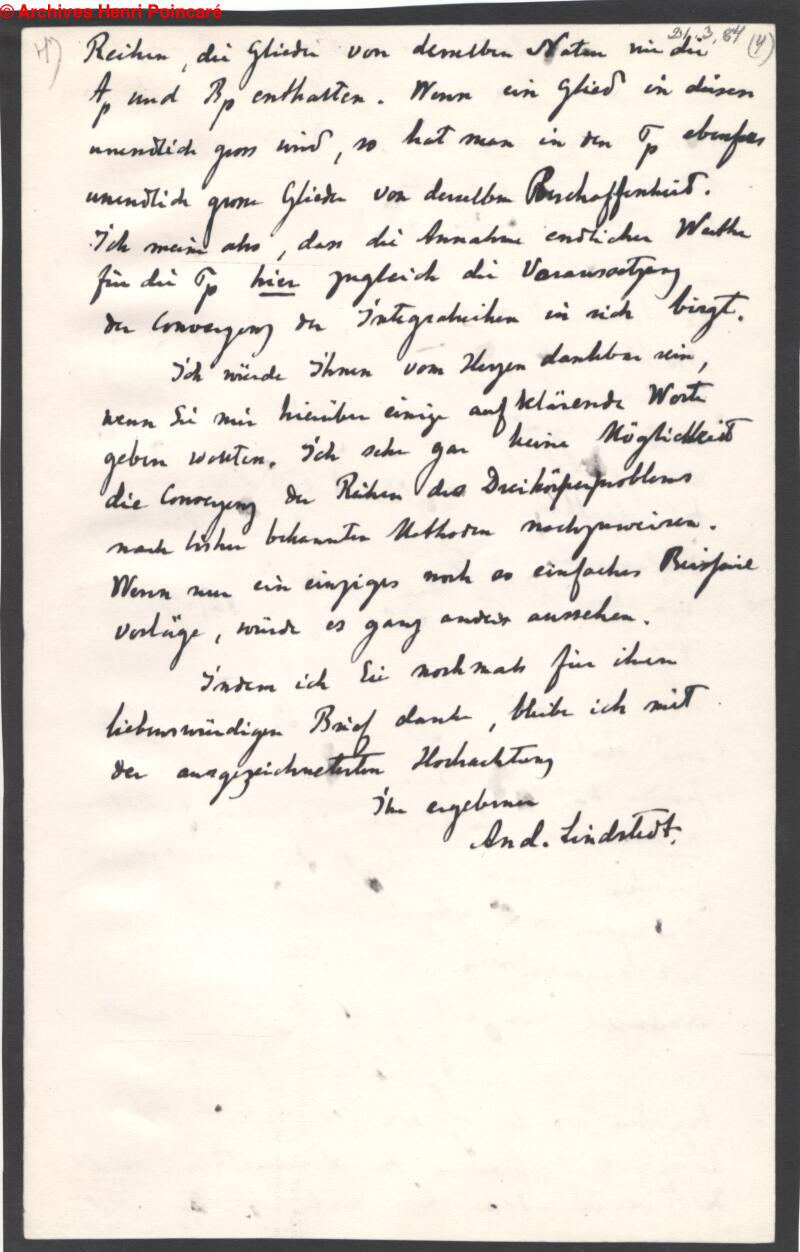 © Archives Henri Poincaré
4) 21.3.84 (4)
Reihen, die Glieder von derselben Natur wie die
A_p und B_p enthalten. Wenn ein Glied in diesen
unendlich gross wird, so hat man in den T_p ebenfalls
unendlich grosse Glieder von derselben Beschaffenheit.
Ich meine also, dass die Annahme endlicher Werthe
für die T_p hier zugleich die Voraussetzung
der Convergenz der Integralreihen in sich birgt.
Ich würde Ihnen vom Herzen dankbar sein,
wenn Sie mir hierüber einige aufklärende Worte
geben wollten. Ich sehe gar keine Möglichkeit
die Convergenz der Reihen des Dreikörperproblems
nach bisher bekannten Methoden nachzuweisen.
Wenn nur ein einziges noch so einfaches Beispiel
vorläge, würde es ganz anders aussehen.
Indem ich Sie nochmals für ihren
liebenswürdigen Brief danke, bleibe ich mit
der ausgezeichnetesten Hochachtung
Ihr ergebener
And. Lindstedt.